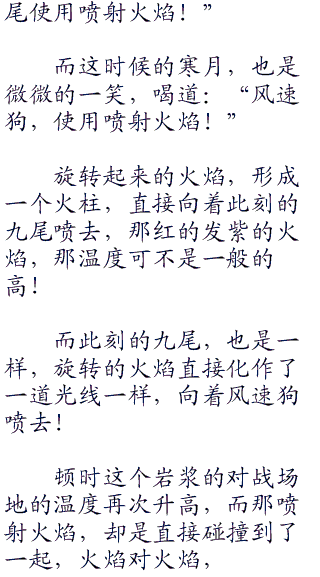 尾使用喷射火焰！”
而这时候的寒月，也是
微微的一笑，喝道：“风速
狗，使用喷射火焰！”
旋转起来的火焰，形成
一个火柱，直接向着此刻的
九尾喷去，那红的发紫的火
焰，那温度可不是一般的
高！
而此刻的九尾，也是一
样，旋转的火焰直接化作了
一道光线一样，向着风速狗
喷去！
顿时这个岩浆的对战场
地的温度再次升高，而那喷
射火焰，却是直接碰撞到了
一起，火焰对火焰，